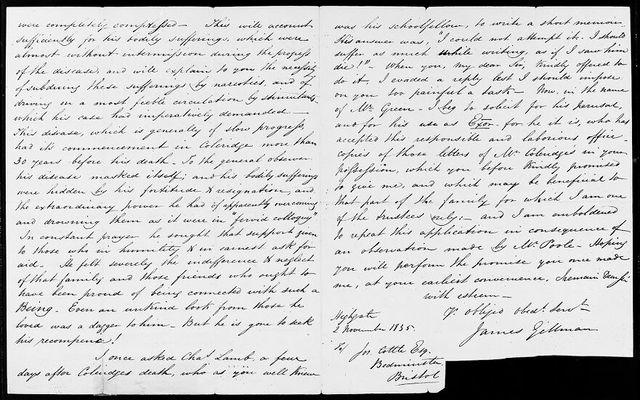 were completely compressed — This will account
sufficiently for his bodily sufferings, which were
almost without intermission during the progress
of the disease, and will explain to you the necessity
of subduing these sufferings by narcotics, and of
driving on a most feeble circulation by stimulants,
which his case had imperatively demanded —
This disease, which is generally of slow progress,
had its commencement in Coleridge more than
30 years before his death. To the general observer
his disease masked itself; and his bodily sufferings
were hidden by his fortitude & resignation, and
the extraordinary power he had of apparently overcoming
and drowning them as it were in "fervid colloquy"
In constant prayer he sought that support given
to those who in humility & in earnest ask for
aid. He felt severely the indifference & neglect
of that family and those friends who ought to
have been proud of being connected with such a
Being. Even an unkind look from those he
loved was a dagger to him — But he is gone to seek
his recompense!
I once asked Chas Lamb, a few
days after Coleridges death, who as you well know
was his schoolfellow, to write a short memoir
His answer was, "I could not attempt it. I should
suffer as much while writing, as if I saw him
die!" — When you, my dear Sir, kindly offered to
do it, I evaded a reply lest I should impose
on you too painful a task — Now, in the name
of Mr Green — I beg to solicit for his perusal,
and for his use as Exor — for he it is, who has
accepted this responsible and laborious office —
copies of those letters of Mr Coleridges in your
possession, which you before kindly promised
to give me, and which may be beneficial to
that part of the family for which I am one
of the trustees only; — and I am emboldened
to repeat this application in consequence of
an observation made by Mr Poole — Hoping
you will perform the promise you once made
me, at your earliest convenience, I remain Dear Sir
with esteem —
Yr obliged obedt servt
James Gillman
Highgate
2 November 1835
To/ Jos Cottle Esq.
Bedminster
Bristol